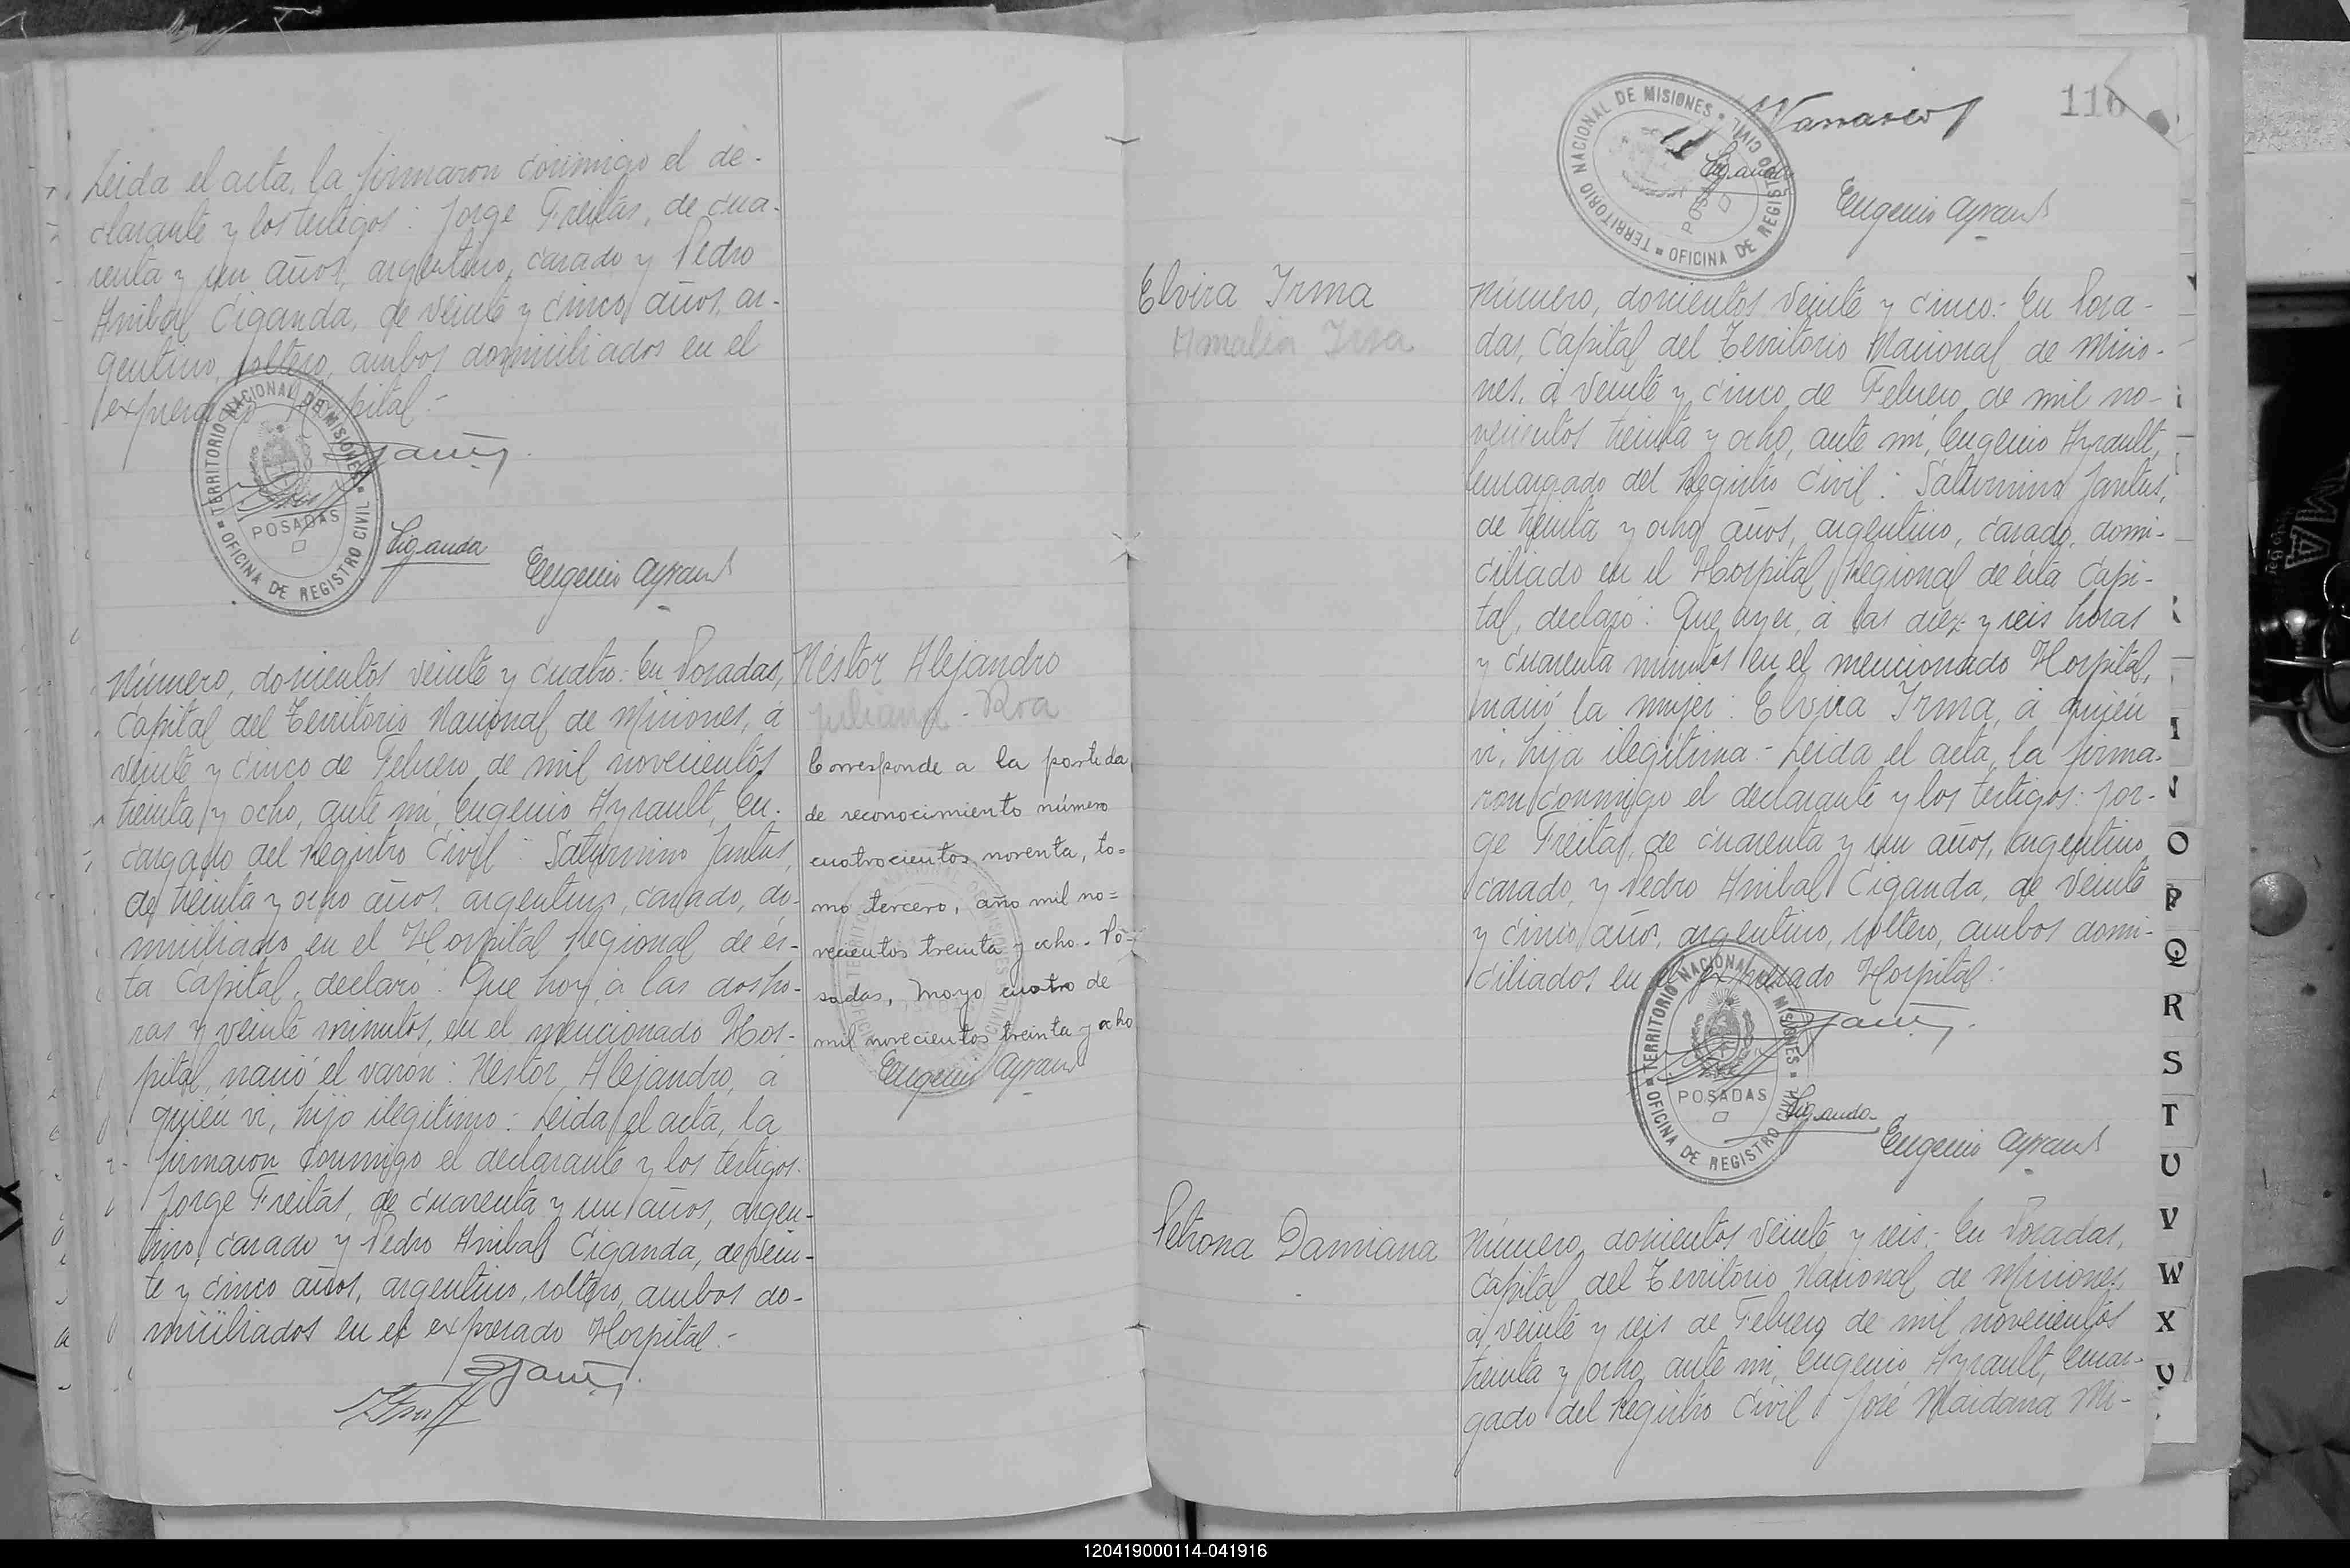 Leida el acta, la firmaron conmigo el de-
clarante y los testigos: Jorge Freitas, de cua-
renta y un años, argentino, casado y Pedro
Anibal Ciganda, de veinte y cinco años, ar-
gentino, soltero, ambos domiciliados en el
expresado Hospital.-
TERRITORIO NACIONAL DE MISIONES
POSADAS
OFICINA DE REGISTRO CIVIL
Ciganda
Eugenio Ayrault
Número, doscientos veinte y cuatro: En Posadas,
Capital del Territorio Nacional de Misiones, á
veinte y cinco de Febrero de mil novecientos
treinta y ocho, ante mi, Eugenio Ayrault, En-
cargado del Registro Civil: Saturnino Jantus,
de treinta y ocho años, argentino, casado, do-
miciliado en el Hospital Regional de és-
ta Capital, declaró: Que hoy, á las dos ho-
ras y veinte minutos, en el mencionado Hos-
pital, nació el varón: Néstor Alejandro, á
quién vi, hijo ilegítimo: Leida el acta, la
firmaron conmigo el declarante y los testigos:
Jorge Freitas, de cuarenta y un años, argen-
tino, casado y Pedro Anibal Ciganda, de vein-
te y cinco años, argentino, soltero, ambos do-
miciliados en el expresado Hospital.-
Néstor Alejandro
Juliana - Roa
Corresponde a la partida
de reconocimiento número
cuatrocientos noventa, to=
mo tercero, año mil no=
vecientos treinta y ocho. Po=
sadas, mayo cuatro de
mil novecientos treinta y ocho
Eugenio Ayrault
116
TERRITORIO NACIONAL DE MISIONES
OFICINA DE REGISTRO CIVIL
Ciganda
Eugenio Ayrault
Elvira Irma
Número, doscientos veinte y cinco: En Posa-
das, Capital del Territorio Nacional de Misio-
nes, á veinte y cinco de Febrero de mil no-
vecientos treinta y ocho, ante mi, Eugenio Ayrault,
Encargado del Registro Civil: Saturnino Jantus,
de treinta y ocho años, argentino, casado, domi-
ciliado en el Hospital Regional de ésta Capi-
tal, declaró: Que ayer, á las diez y seis horas
y cuarenta minutos en el mencionado Hospital,
nació la mujer: Elvira Irma, á quién
vi, hija ilegítima.- Leida el acta, la firma-
ron conmigo el declarante y los testigos: Jor-
ge Freitas, de cuarenta y un años, argentino,
casado, y Pedro Anibal Ciganda, de veinte
y cinco años, argentino, soltero, ambos domi-
ciliados en el expresado Hospital:
TERRITORIO NACIONAL DE MISIONES
POSADAS
OFICINA DE REGISTRO CIVIL
Ciganda
Eugenio Ayrault
Petrona Damiana
Número, doscientos veinte y seis.- En Posadas,
Capital del Territorio Nacional de Misiones,
á veinte y seis de Febrero de mil novecientos
treinta y ocho, ante mi, Eugenio Ayrault, Encar-
gado del Registro Civil: José Maidana Mi-
O
P
Q
R
S
T
U
V
W
X
120419000114-041916